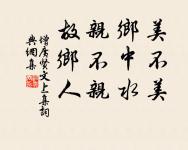 美不美
鄉中水
親不親
故鄉人
增廣賢文上集詞
典網集